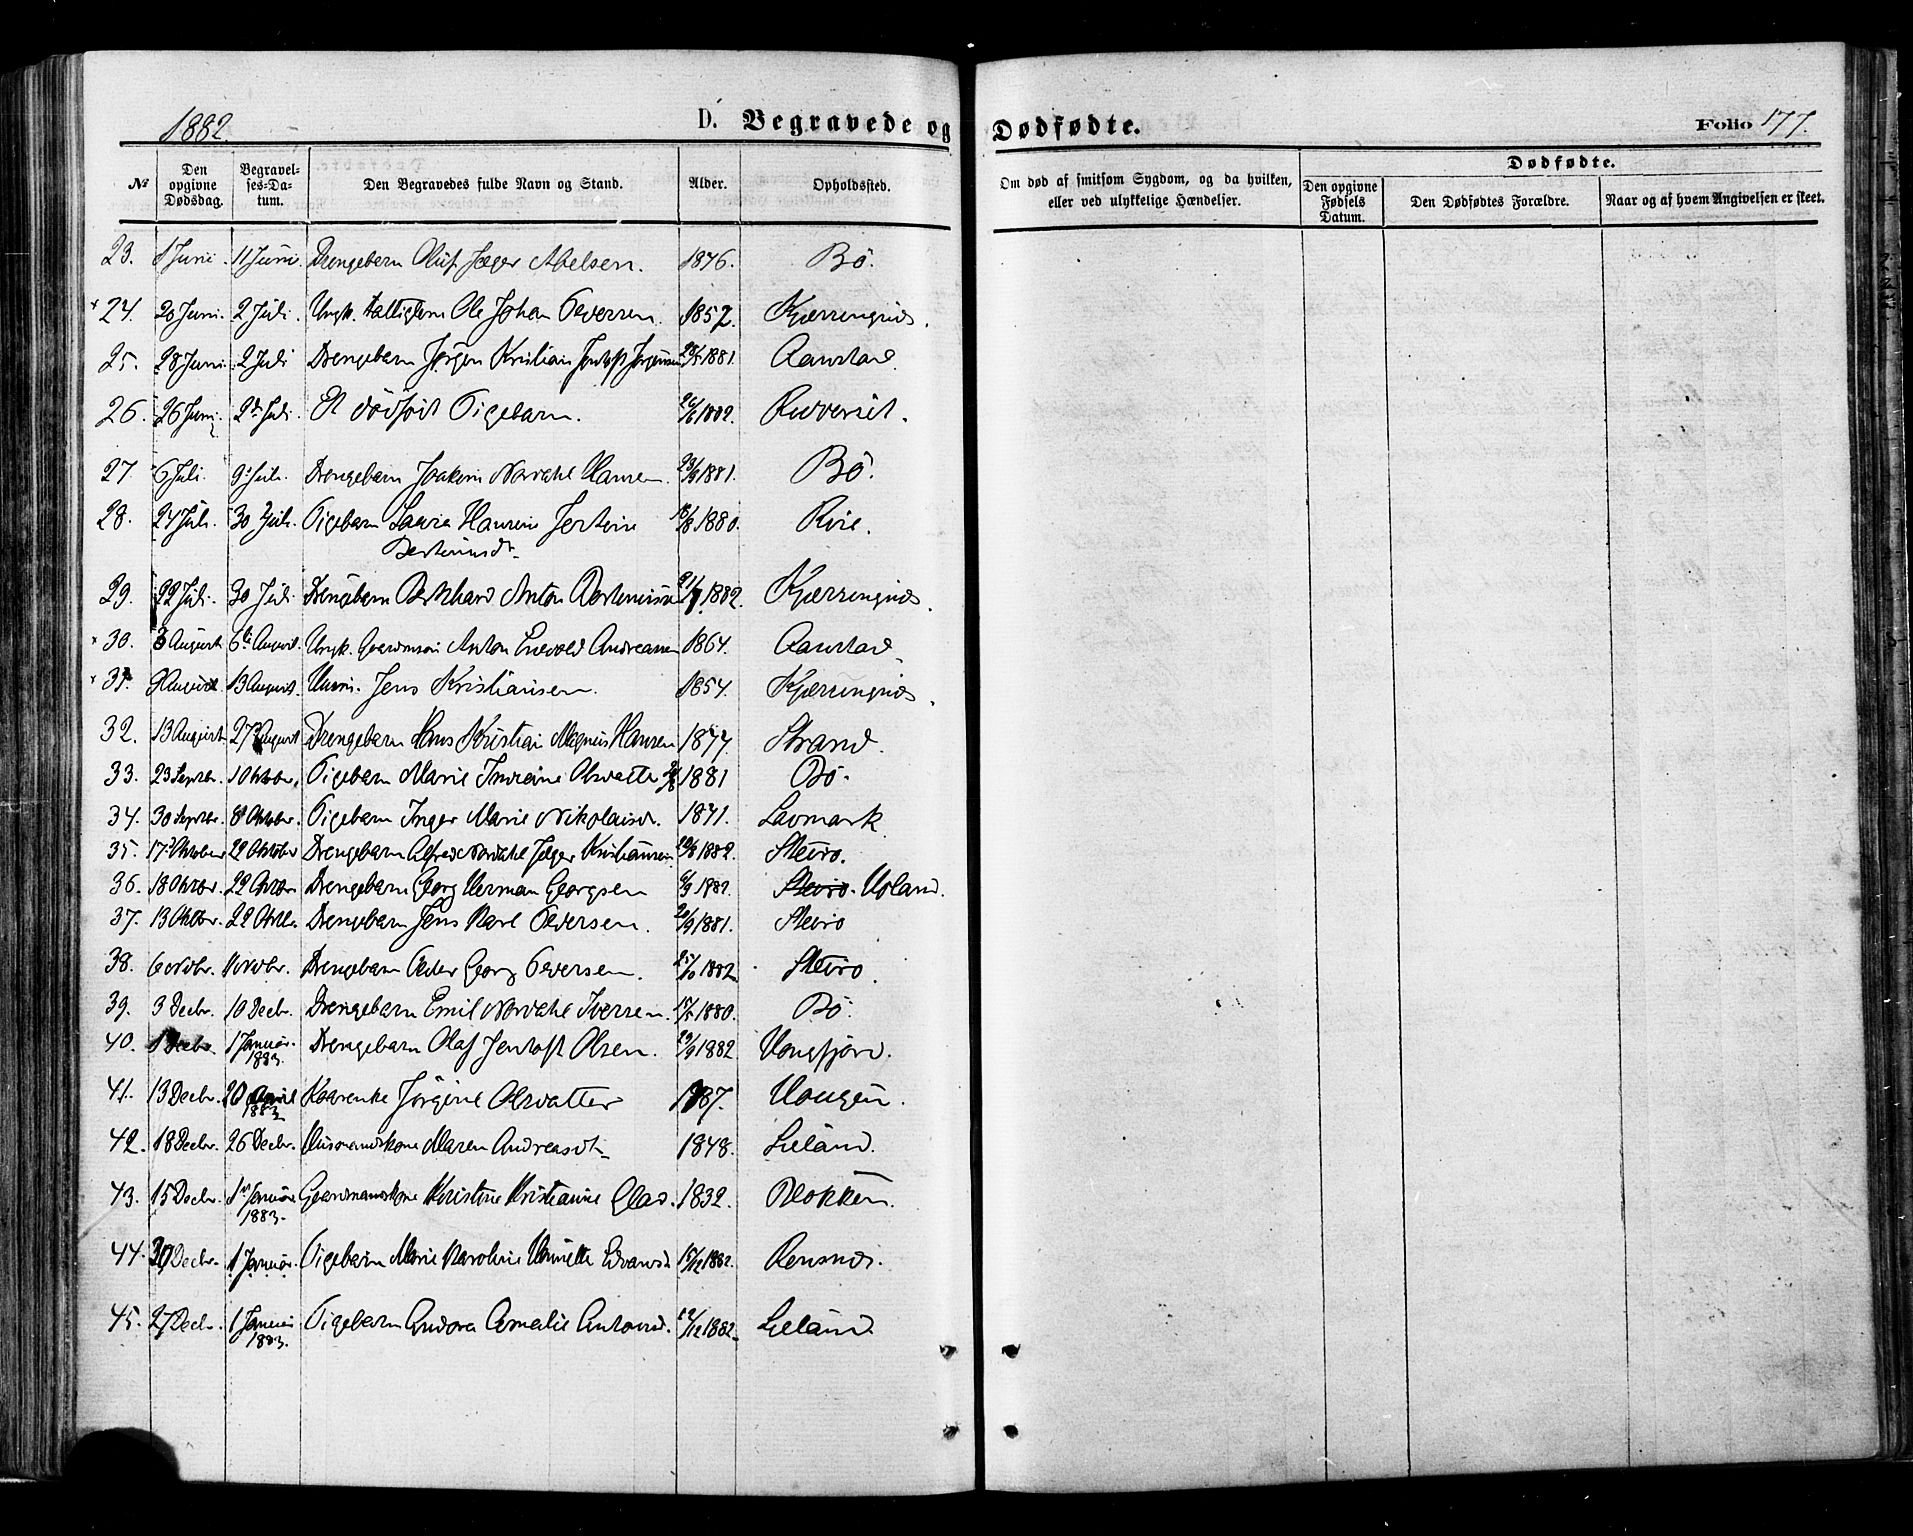 1882.
D. Begravede og Dødfødte.
Folio 177.
№ Den opgivne Dødsdag. Begravelses-Datum. Den Begravedes fulde Navn og Stand. Alder. Opholdssted. Om død af smitsom Sygdom, og da hvilken, eller ved ulykkelige Hændelser. Dødfødte. Den opgivne Fødsels Datum. Den Dødfødtes Forældre. Naar og af hvem Angivelsen er skeet.
23. 1 Juni 11 Juni Drengebarn Oluf Jæger Abelsen. 1876. Bö.
24. 20 Juni 2 Juli Ungk. Ole Johan Peversen. 1857. Kjærringnæs.
25. 28 Juni 2 Juli Drengebarn Jørgen Kristian Jentoft Jørgensen 1881. Aanstad
26. 26 Juni 2 Juli Et dødfødt Pigebarn. 26/6 1882.
27. 6 Juli 9 Juli Drengebarn Joakim Nordahl Hansen. 23/9 1881. Bö.
28. 24 Juli 30 Juli Pigebarn Laura Hansine Jertine 18/8 1880. Rise.
29. 22 Juli 30 Juli Drengebarn Anton 1882. Kjærringnæs.
30. 3 August 6 August Ungk. Gaardmsøn Anton Enevold Andreassen 1864. Aanstad.
31. 9 August 13 August Husm. Jens Kristiansen. 1854. Kjærringnæs.
32. 13 August 27 August Drengebarn Hans Kristian Magnus Hansen 1877. Strand.
33. 23 Septbr. 1 Oktober. Pigebarn Marie Indiane Olsdatter 1881 Bö.
34. 30 Septbr. 8 Oktober Pigebarn Inger Marie Nikolaisd. 1871. Lavmark
35. 17 Oktober 22 Oktober Drengebarn Alfred Nordahl Jæger Kristiansen 1882. Steiro.
36. 18 Oktbr. 22 Oktbr Drengebarn Georg Herman Georgsen 6/9 1882. Steiro. Uvland.
37. 13 Oktbr. 22 Oktbr Drengebarn Jens Karl Peversen. 1881. Steiro
38. 6 Novbr. Novbr. Drengebarn Peder Georg Peversen. 25/10 1882. Steiro.
39. 3 Decbr. 10 Decbr. Drengebarn Emil Nordahl Iversen. 1880. Bö.
40. 1 Decbr. 1 Januar. 1883. Drengebarn Olaf Jentoft Olsen. 1882 Vongfjord.
41. 13 Decbr. 20 April 1883 Jørgine Olsdatter 1787. Haugen.
42. 18 Decbr. 26 Decbr. Husmandskone Maren Andreasdt. 1848. Lieland.
43. 15 Decbr. 1 Januar 1883. Gaardmandskone Kristine Kristianne Glad. 1832. Blokken.
44. 30 Decbr. 1 Januar. Pigebarn Marie Karoline 15/12 1882. Rensnæs.
45. 27 Decbr. 1 Januar 1883. Pigebarn Andora Amalie Antonsd. /12 1882. Lieland.